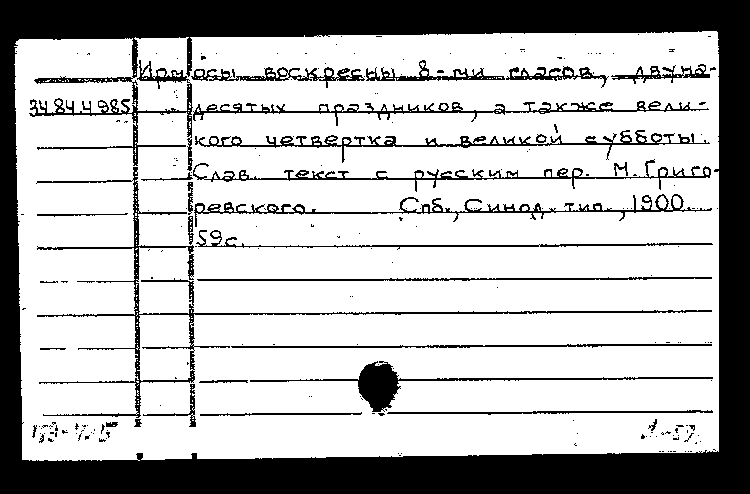 Ирмосы воскресны 8-ми гласов, двуна-
34.84.4.985 десятых праздников, а также вели-
кого четвертка и великой субботы.
Слав. текст с русским пер. М. Григо-
ревского. Спб., Синод. тип., 1900.
59с.